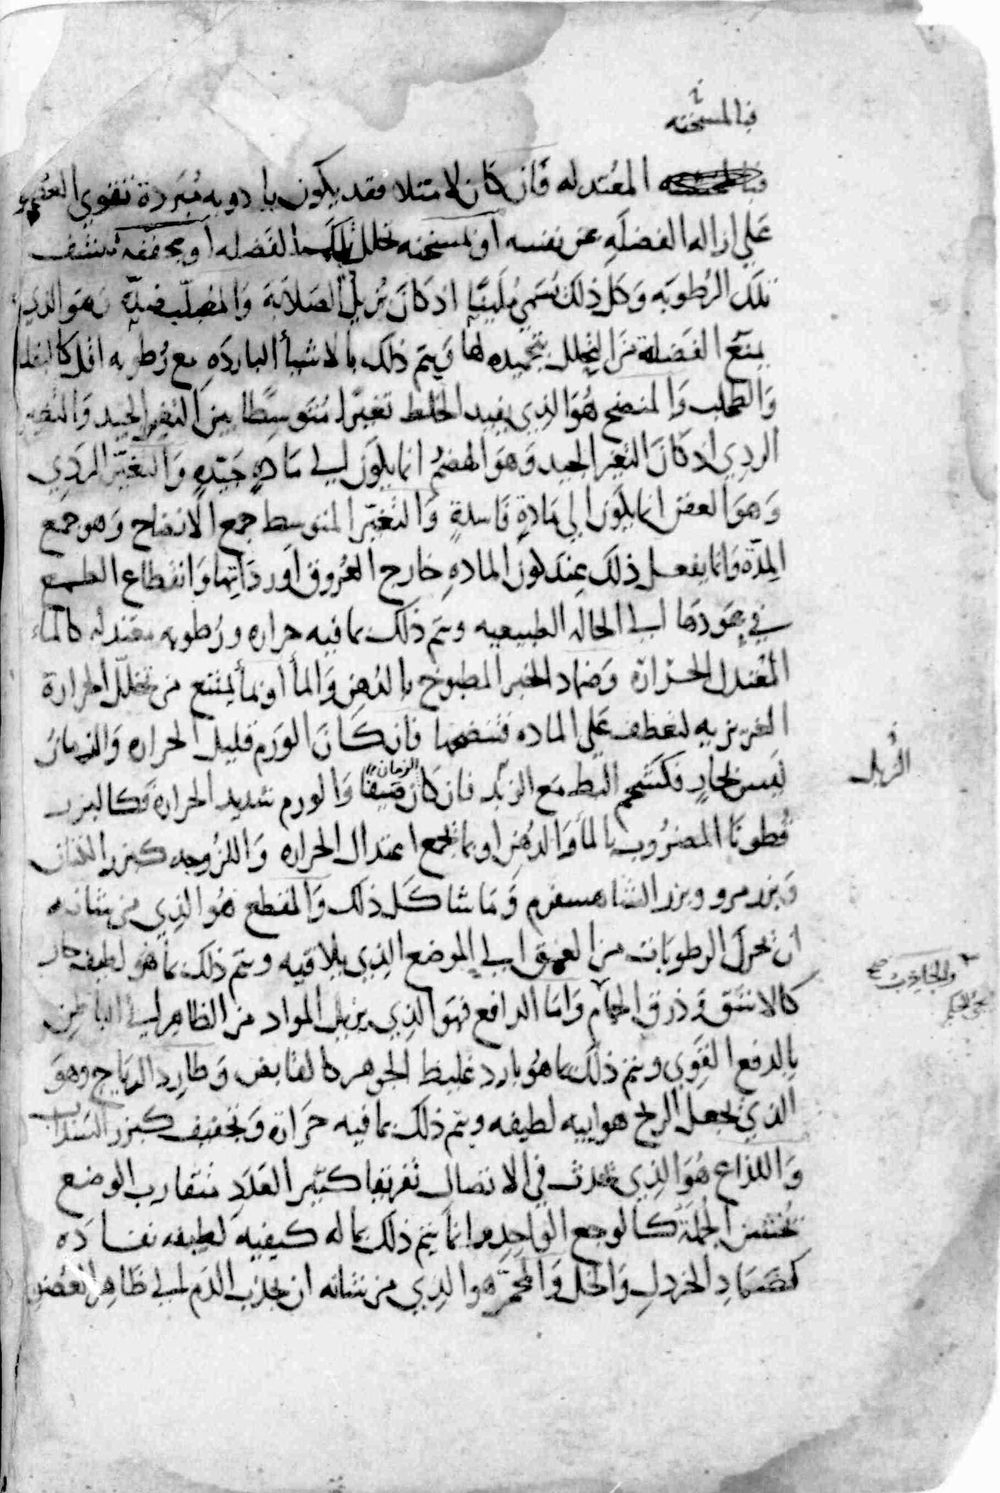 فبالمسخنه
المعتدله فان كان لامتلا فقد يكون بادويه مبردة تقوي العضو
علي ازاله الفضله عن نفسه او مسخنه تحلل تلك الفضله او مجففه تنشف
تلك الرطوبه وكل ذلك يسمي مليّنا اذ كان يزيل الصلابة والمصلّب ضدّه وهو الذي
يمنع الفضلة من التحلل بتجميده لها ويتم ذلك بالاشيأ البارده مع رطوبه اقل كالبقله
والطحلب والمنضج هو الذي يفيد الخلط تغيرا متوسطا بين التغير الجيد والتغير
الردي اذ كان التغير الجيد وهو الهضم انما يكون في مادة جيّده والتغيّر الردي
وهو العفن انما يكون في مادة فاسدة والتغيّر المتوسط جمع الانضاج وهو جمع
المدّة وانما يفعل ذلك عند كون الماده خارج العروق او رداتها وانقطاع الطمع
في عودها الي الحاله الطبيعيه ويتم ذلك بما فيه حراره ورطوبه معتدله كالماء
المعتدل الحرارة وضماد الخبز المطبوخ بالدهن والمأ او بما يمنع من تحلل الحرارة
الغريزيه لتعطف علي الماده فتنضجها فان كان الورم قليل الحراره والزمان
ليس بحار فكشحم البط مع الزبد فان كان الزمان صيفا والورم شديد الحرارة فكالبزر
قطونا المضروب بالمأ والدهن او بما يجمع اعتدال الحراره واللزوجه كبزر الكتان
وبزر مرو وبزر الشاهسفرم وما شاكل ذلك والمقطع هو الذي من شانه
ان يحرك الرطوبات من العمق الي الموضع الذي يلاقيه ويتم ذلك بما هو لطيف حار
كالاشق وذرق الحمام واما الدافع فهو الذي يزيل المواد من الظاهر الي الباطن
بالدفع القوي ويتم ذلك بما هو بارد غليظ الجوهر كالقابض وطارد الرياح وهو
الذي يجعل الريح هواييه لطيفه ويتم ذلك بما فيه حرارة وتجفيف كبزر السداب
واللذاع هو الذي يحدث في الاتصال تفريقا كثير العدد متقارب الوضع
تحس الجملة كالوجع الواحد وانما يتم ذلك بما له كيفيه لطيفه نفاذه
كضماد الخردل والخل والمحمّر هو الذي من شانه ان يجذب الدم الي ظاهر العضو
الزبل
والجاذب صح